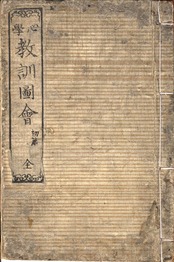 心學
教訓圖會
初篇
全